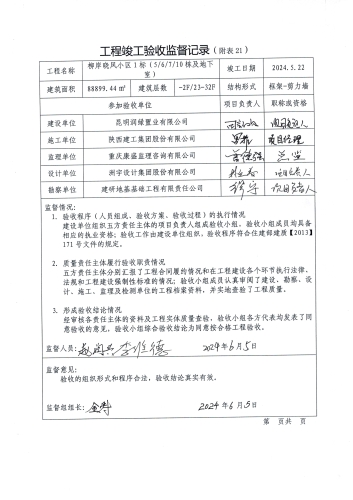 工程竣工验收监督记录（附表21）
工程名称 柳岸晓风小区1标（5/6/7/10栋及地下室） 竣工日期 2024.5.22
建筑面积 88899.44㎡ 建筑层数 -2F/23-32F 结构形式 框架-剪力墙
参加验收单位 项目负责人 职称或资格
建设单位 昆明润绿置业有限公司
施工单位 陕西建工集团股份有限公司 项目经理
监理单位 重庆康盛监理咨询有限公司 总监
设计单位 洲宇设计集团股份有限公司
勘察单位 建研地基基础工程有限责任公司
监督情况：
1、验收程序（人员组成、验收方案、验收过程）的执行情况
建设单位组织五方责任主体的项目负责人组成验收小组，验收小组成员均具备
相应的执业资格；验收工作由建设单位组织。验收程序符合住建部建质【2013】
171号文件的规定。
2、质量责任主体履行验收职责情况
五方责任主体分别汇报了工程合同履约情况和在工程建设各个环节执行法律、
法规和工程建设强制性标准的情况；验收小组成员认真审阅了建设、勘察、设
计、施工、监理及检测单位的工程档案资料，并实地查验了工程质量。
3、形成验收结论情况
经审核各责任主体的资料及工程实体质量查验，验收小组各方代表均发表了同
意验收的意见，验收小组综合验收结论为同意按合格工程验收。
监督人员： 2024年6月5日
监督意见：
验收的组织形式和程序合法，验收结论真实有效。
监督组组长： 2024年6月5日
第 页共 页